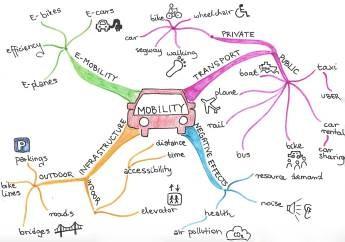 E-bikes
E-cars
efficiency
E-planes
E-MOBILITY
MOBILITY
TRANSPORT
PRIVATE
bike
wheelchair
car
segway
walking
PUBLIC
taxi
UBER
car
rental
car
sharing
boat
plane
rail
bus
bike
NEGATIVE EFFECTS
resource demand
noise
health
air pollution
CO₂
INFRASTRUCTURE
INDOOR
distance
time
accessibility
elevator
OUTDOOR
P
parkings
bike
lines
roads
bridges